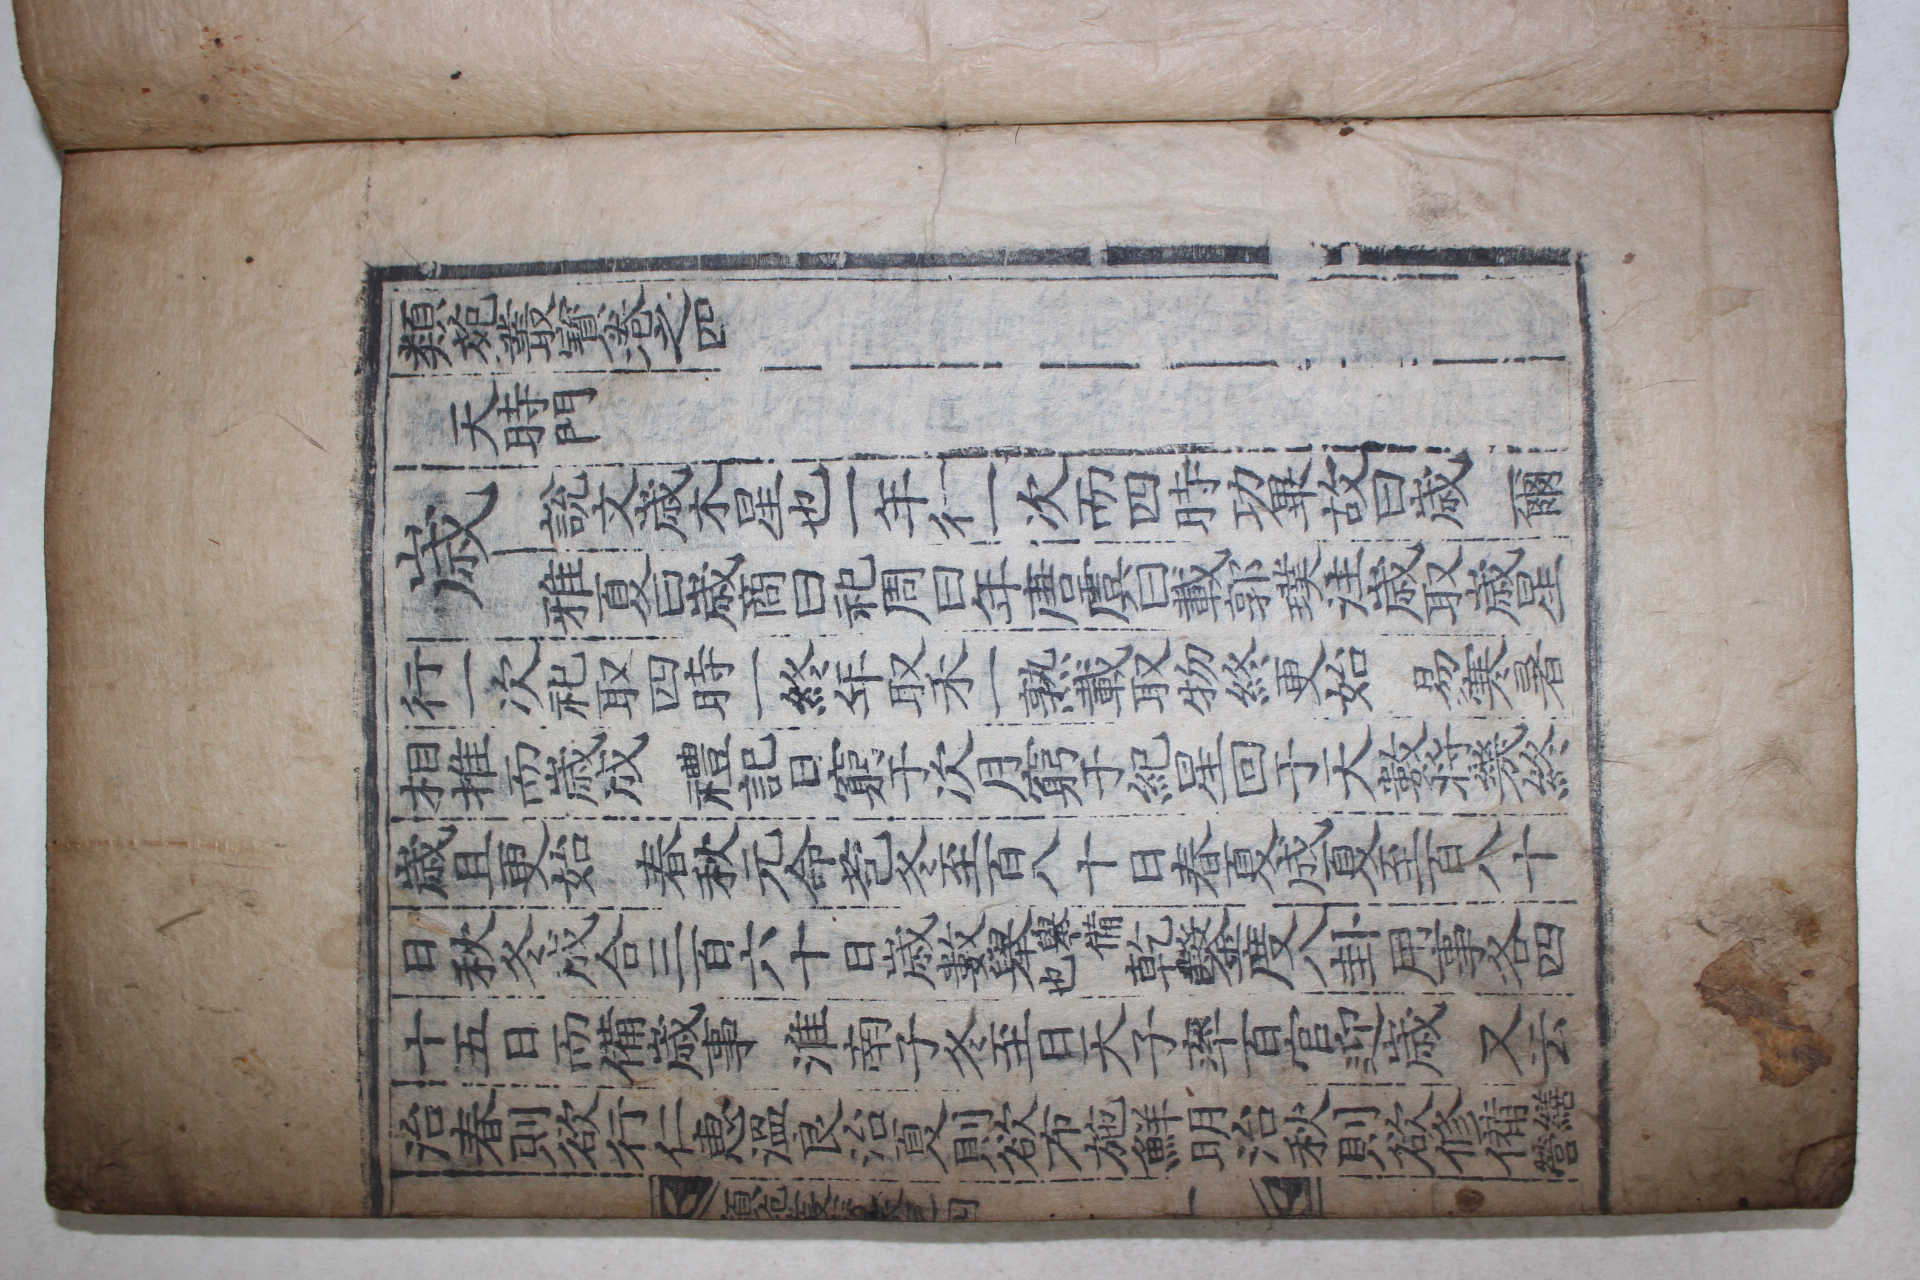 類苑叢寶卷之四
天時門
歲 說文歲木星也一年行一次而四時功畢故曰歲 爾
雅夏曰歲商曰祀周曰年唐虞曰載郭璞注歲取歲星
行一次祀取四時一終年取禾一熟載取物終更始 易寒暑
相推而歲成 禮記日窮于次月窮于紀星回于天數將幾終
歲且更始 春秋元命苞冬至百八十日春夏成夏至百八十
日秋冬成合三百六十日歲數舉舉備也 乾鑿度八卦用事各四
十五日而備歲事 淮南子冬至日天子率百官迎歲 又云
治春則欲行仁惠溫良治夏則欲布施鮮明治秋則欲修備繕
類苑叢寶卷之四 一